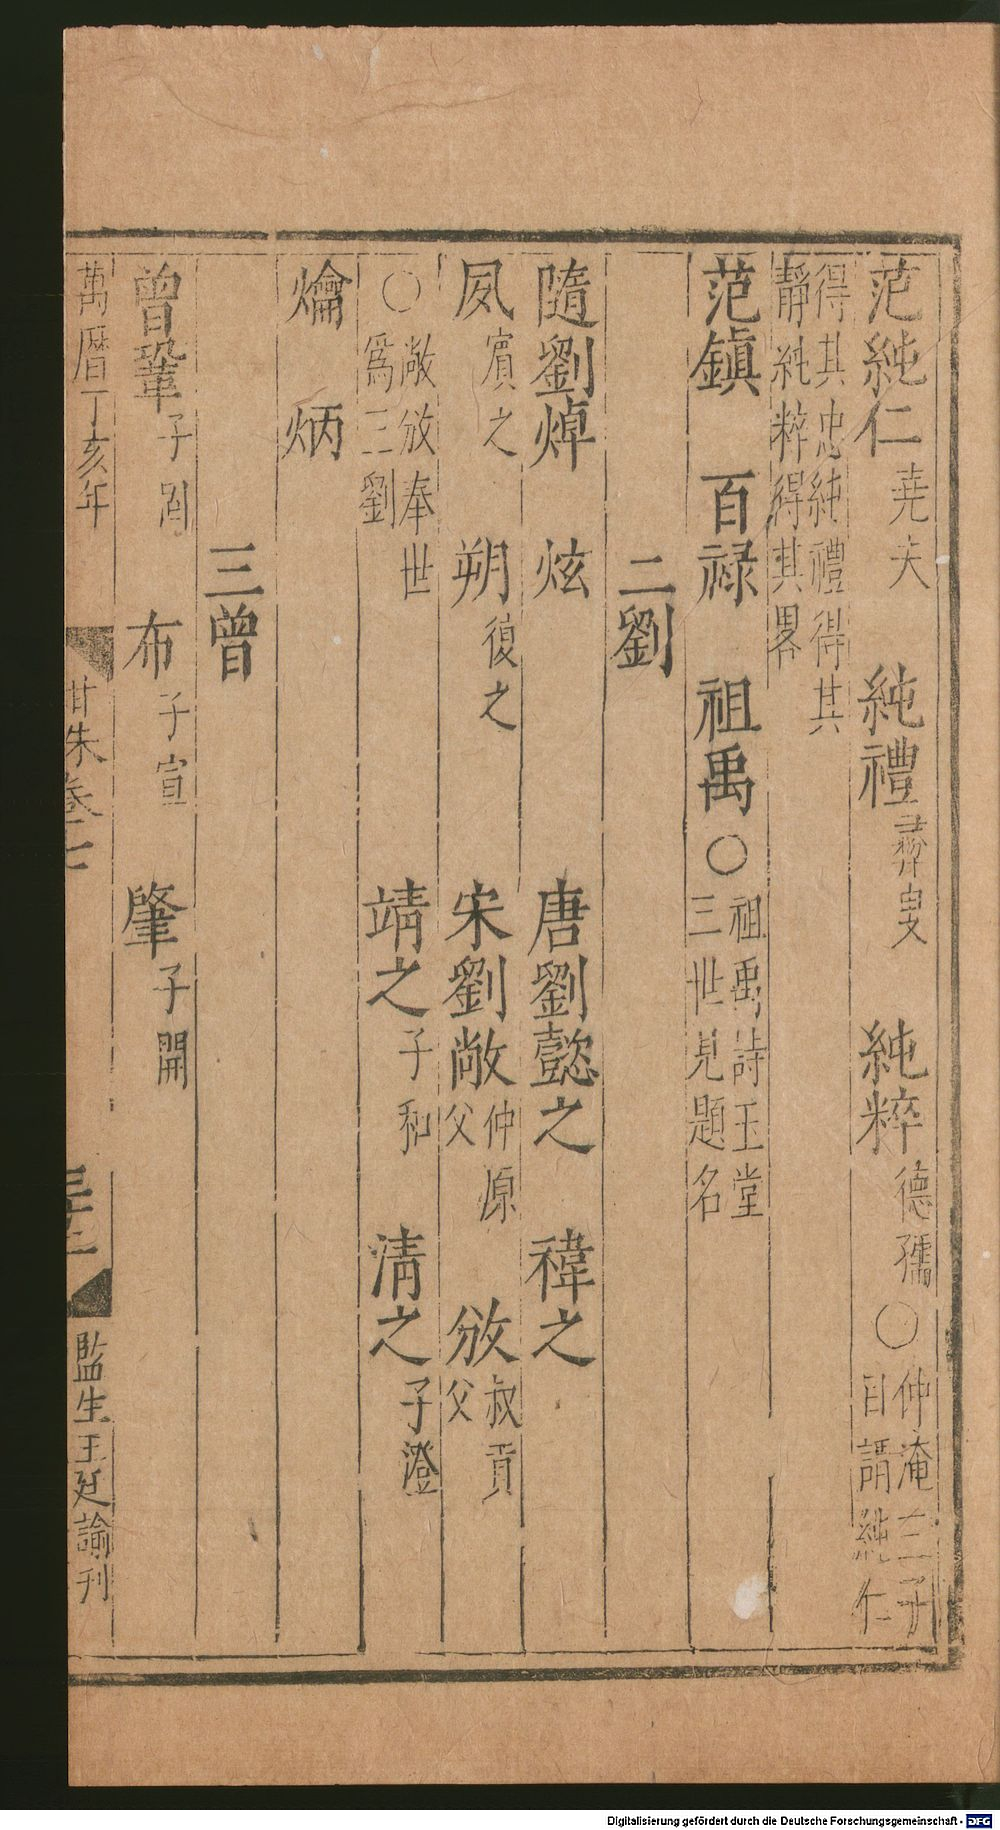 范純仁堯夫 純禮彛叟 純粹德孺○仲淹三子自謂純仁
得其忠純禮得其靜純粹得其畧
范鎮 百禄 祖禹○祖禹詩玉堂三世見題名
二劉
隨劉焯 炫 唐劉懿之 禕之
夙賓之 朔復之 宋劉敞仲原父 攽叔貢父
○敞攽奉世爲三劉 靖之子和 淸之子澄
爚 炳
三曾
曾鞏子固 布子宣 肇子開
萬曆丁亥年 卷七 監生王廷諭刊
Digitalisierung gefördert durch die Deutsche Forschungsgemeinschaft - DFG